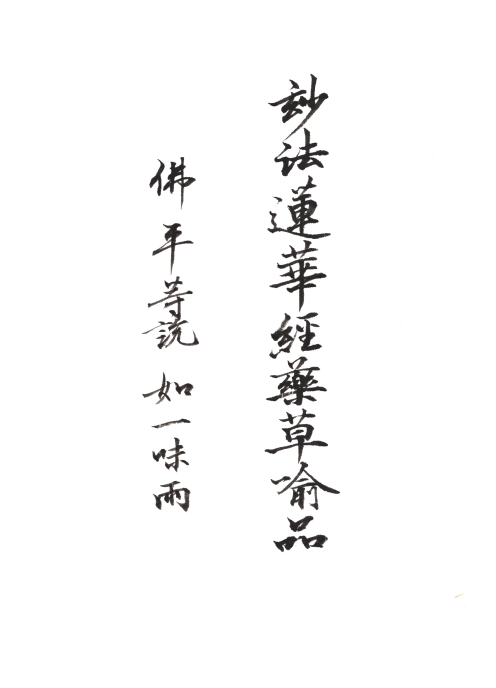 玅法蓮華經藥草喻品
佛平等說如一味雨